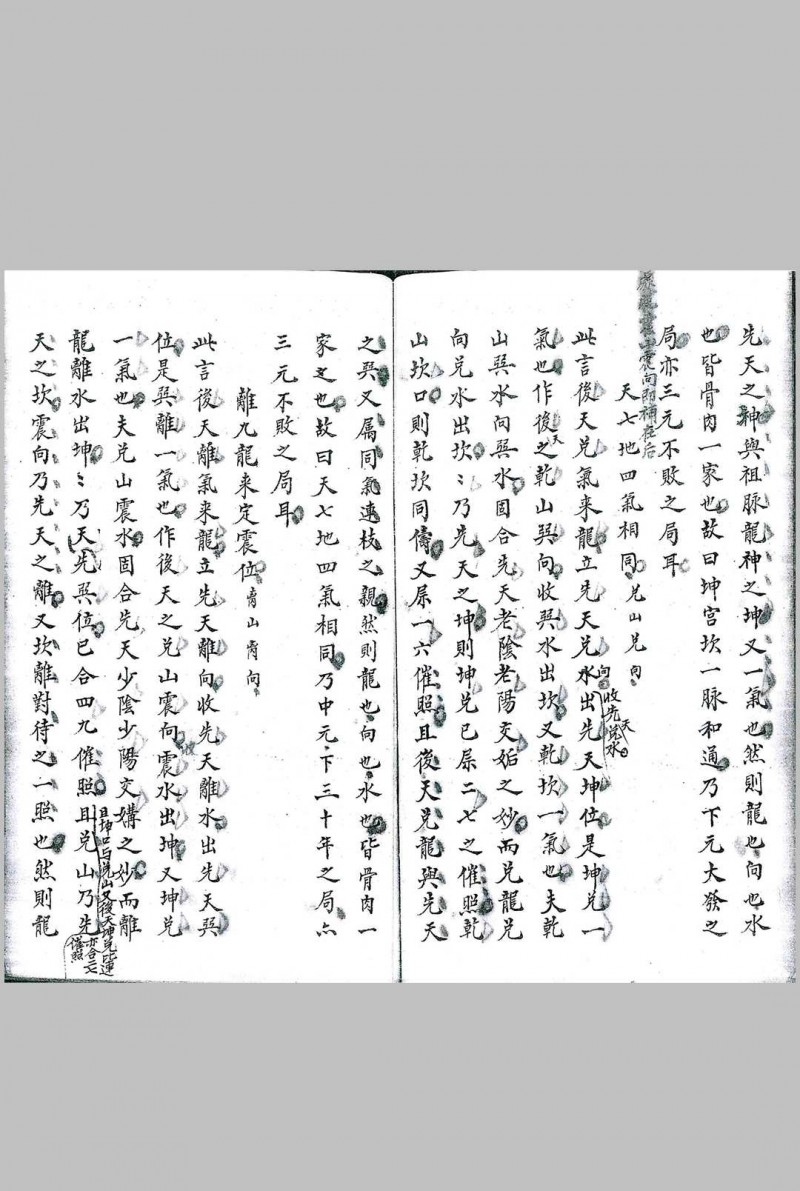 先天之神與祖脉龍神之坤又一氣也然則龍也向也水
也皆骨肉一家也故曰坤宫坎一脉和通乃下元大發之
局亦三元不敗之局耳
山震向即補在后
天七地四氣相同 兑山兑向
此言後天兑氣来龍立先天兑向收先天兑水出先天坤位是坤兑一
氣也作後天之乾山巽向收巽水出坎又乾坎一氣也夫乾
山巽水向巽水固合先天老陰老陽交姤之妙而兑龍兑
向兑水出坎〻乃先天之坤則坤兑已屌二七之催照乾
山坎口則乾坎同儔又屌一六催照且後天兑龍與先天
之巽又属同氣連枝之親然則龍也向也水也皆骨肉一
家之也故曰天七地四氣相同乃中元下三十年之局亦
三元不敗之局耳
離九龍来定震位 离山离向
此言後天離氣来龍立先天離向收先天離水出先天巽
位是巽離一氣也作後天之兑山震向震水出坤又坤兑
一氣也夫兑山震水固合先天少陰少陽交媾之妙而離
龍離水出坤〻乃天先巽位已合四九催照且兑山乃先
且坤口与兑山又後天坤兑此運亦合二七催照
天之坎震向乃先天之離又坎離對待之一照也然則龍